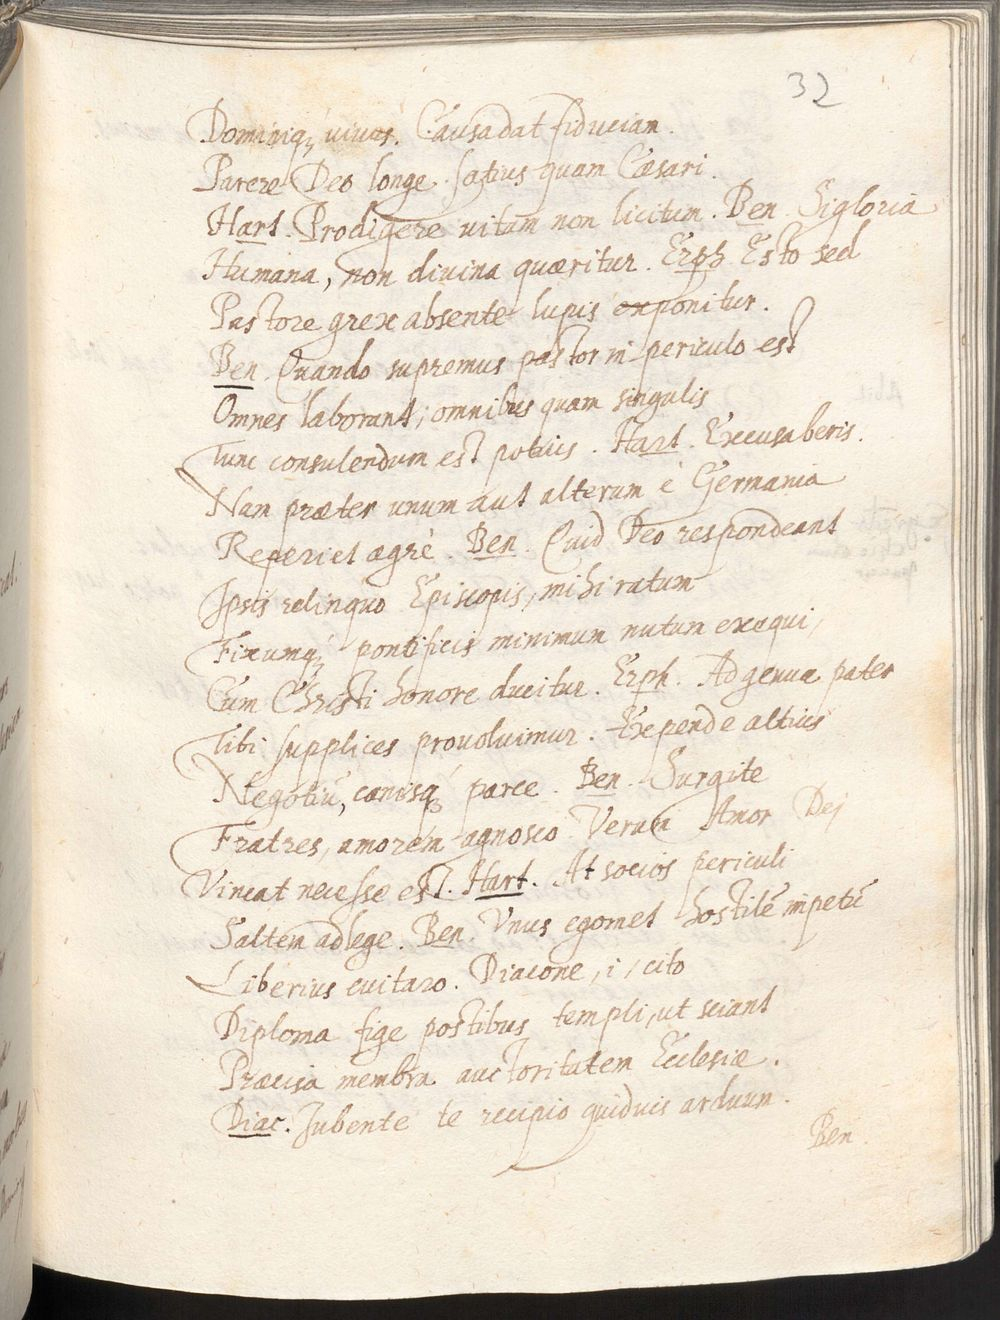 32
Dominiq; vivas. Causa dat fiduciam.
Parere Deo longe satius quam Cæsari.
Hart. Prodigere vitam non licitum. Ben. Si gloria
Humana, non divina quæritur. Erph. Esto sed
Pastore grex absente lupis exponitur.
Ben. Quando supremus pastor in periculo est
Omnes laborant; omnibus quam singulis
Tunc consulendum est potius. Hart. Excusaberis.
Nam præter unum aut alterum è Germania
Reperiet ægrè. Ben. Quid Deo respondeant
Ipsis relinquo Episcopis, mihi ratum
Fixumq; pontificis minimum nutum exequi,
Cum Christi honore ducitur. Erph. Ad genua pater
Tibi supplices provolvimur. Expende altius
Negotiū, canisq; parce. Ben. Surgite
Fratres, amorem agnosco. Verum Amor Dej
Vincat necesse est. Hart. At socios periculi
Saltem adlege. Ben. Vnus egomet hostilē impetū
Liberius evitaro. Diacone, i, cito
Diploma fige postibus templi, ut sciant
Præcisa membra auctoritatem Ecclesiæ.
Diac. Jubente te recipio quidvis arduum.
Ben.